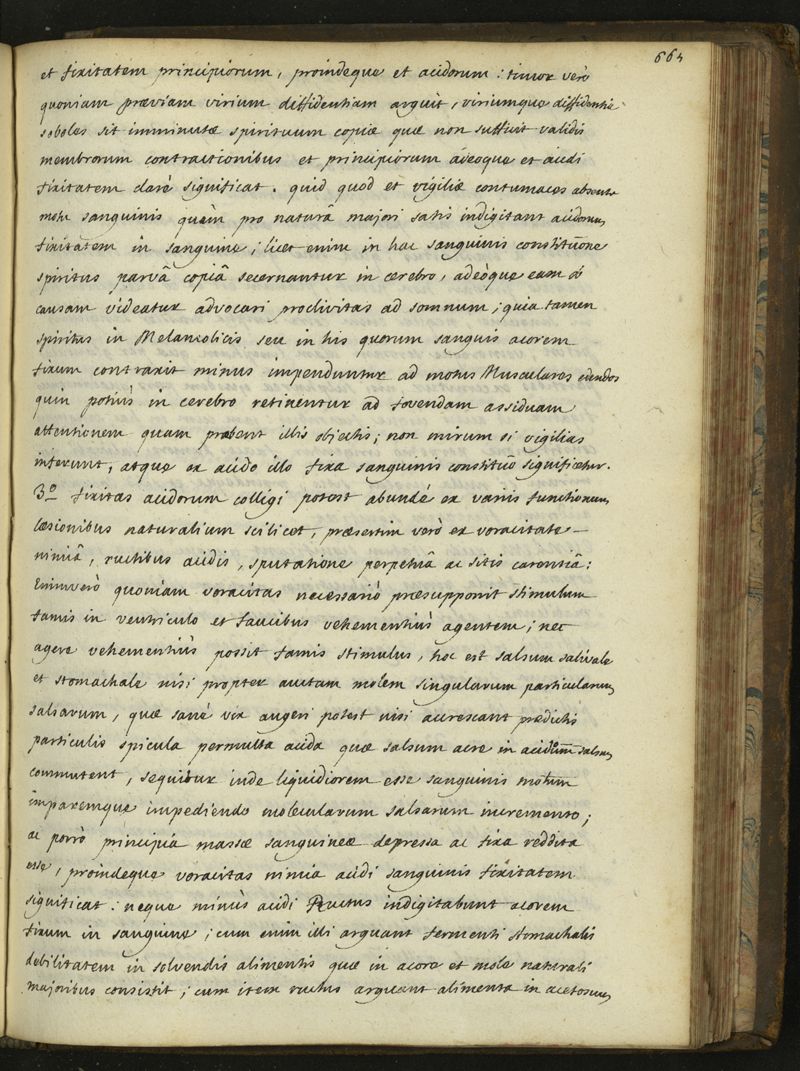 665
et fixitatem principiorum, proindeque et acidorum: timor verò
quoniam præviam virium diffidentiam arguit, viriumque diffidentia
soboles sit imminutæ spirituum copiæ quæ non sufficit validis
membrorum contractionibus et principiorum adeoque et acidi
fixitatem clarè significat. quid quod et vigiliæ contumaces absente
motu sanguinis quàm pro naturâ majori satis indigitant acidorum
fixitatem in sanguine; licet enim in hac sanguinis constitutione
spiritus parvâ copiâ secernantur in cerebro, adeòque eam ob
causam videatur advocari proclivitas ad somnum; quia tamen
spiritus in Melancolicis seu in his quorum sanguis acorem
fixum contraxit minus impenduntur ad motus Musculares edendos
quin potiùs in cerebro retinentur ad fovendam assiduam
attentionem quam præbent illis objectis; non mirum si vigilias
inferunt, atque ex acido illo fixa sanguinis constitutio significetur.
3º fixitas acidorum colligi potest abundé ex variis functionum
læsionibus naturalium scilicet, præsertim verò ex voracitate
nimiâ, ructibus acidis, sputatione perpetuâ ac sitis carentiâ:
Enimverò quoniam voracitas necessariò præsupponit stimulum
famis in ventriculo et faucibus vehementiùs agentem; nec
agere vehementiùs possit famis stimulus, hoc est salsum salivale
et stomachale nisi propter auctam molem singularum particularum
salsarum, quæ sanè vix augeri potest nisi accrescant prædictis
particulis spicula permulta acida quæ salsum acre in acidum salsum
commutent, sequitur inde liquidiorem esse sanguinis motum
imparemque impediendo molecularum salsarum incremento;
ac porrò principia massæ sanguineæ depressa ac fixa reddita
esse, proindeque voracitas nimia acidi sanguinis fixitatem
significat: neque minùs acidi Ructus indigitabunt acorem
fixum in sanguine; cum enim illi arguant fermenti stomachalis
debilitatem in solvendis alimentis quæ in acore et mole naturali
majoribus consistit; cum item ructus arguant alimenta in acetosum